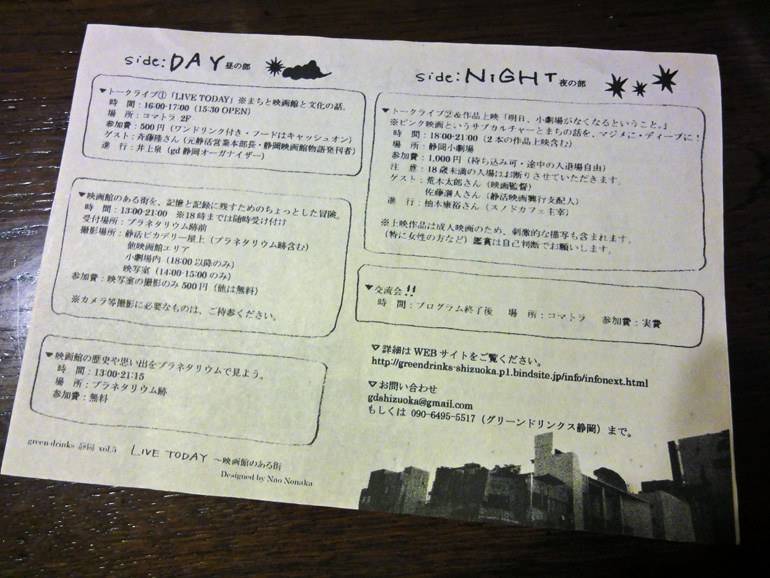 side: DAY 昼の部
▼トークライブ①「LIVE TODAY」※まちと映画館と文化の話。
時 間：16:00-17:00（15:30 OPEN）
場 所：コマトラ 2F
参加費：500円（ワンドリンク付き・フードはキャッシュオン）
ゲスト：斉藤隆さん（元静活営業本部長・静岡映画館物語発刊者）
進 行：井上泉（gd 静岡オーガナイザー）
▼映画館のある街を、記憶と記録に残すためのちょっとした冒険。
時 間：13:00-21:00 ※18時までは随時受け付け
受付場所：プラネタリウム跡前
撮影場所：静活ピカデリー屋上（プラネタリウム跡含む）
他映画館エリア
小劇場内（18:00以降のみ）
映写室（14:00-15:00のみ）
参加費：映写室の撮影のみ500円（他は無料）
※カメラ等撮影に必要なものは、ご持参ください。
▼映画館の歴史や思い出をプラネタリウムで見よう。
時 間：13:00-21:15
場 所：プラネタリウム跡
参加費：無料
green drinks 静岡 vol.5 LIVE TODAY ～映画館のある街
Designed by Nao Nonaka
side: NIGHT 夜の部
▼トークライブ②&作品上映「明日、小劇場がなくなるということ。」
※ピンク映画というサブカルチャーとまちの話を、マジメに・ディープに！
時 間：18:00-21:00（2本の作品上映含む）
場 所：静岡小劇場
参加費：1,000円（持ち込み可・途中の入退場自由）
注 意：18歳未満の入場はお断りさせていただきます。
ゲスト：荒木太郎さん（映画監督）
佐藤選人さん（静活映画興行支配人）
進 行：柚木康裕さん（スノドカフェ主宰）
※上映作品は成人映画のため、刺激的な描写も含まれます。
（特に女性の方など）鑑賞は自己判断でお願いします。
▼交流会!!
時 間：プログラム終了後 場 所：コマトラ 参加費：実費
▽詳細はWEBサイトをご覧ください。
http://greendrinks-shizuoka.p1.bindsite.jp/info/infonext.html
▽お問い合わせ
gdshizuoka@gmail.com
もしくは 090-6495-5517（グリーンドリンクス静岡）まで。